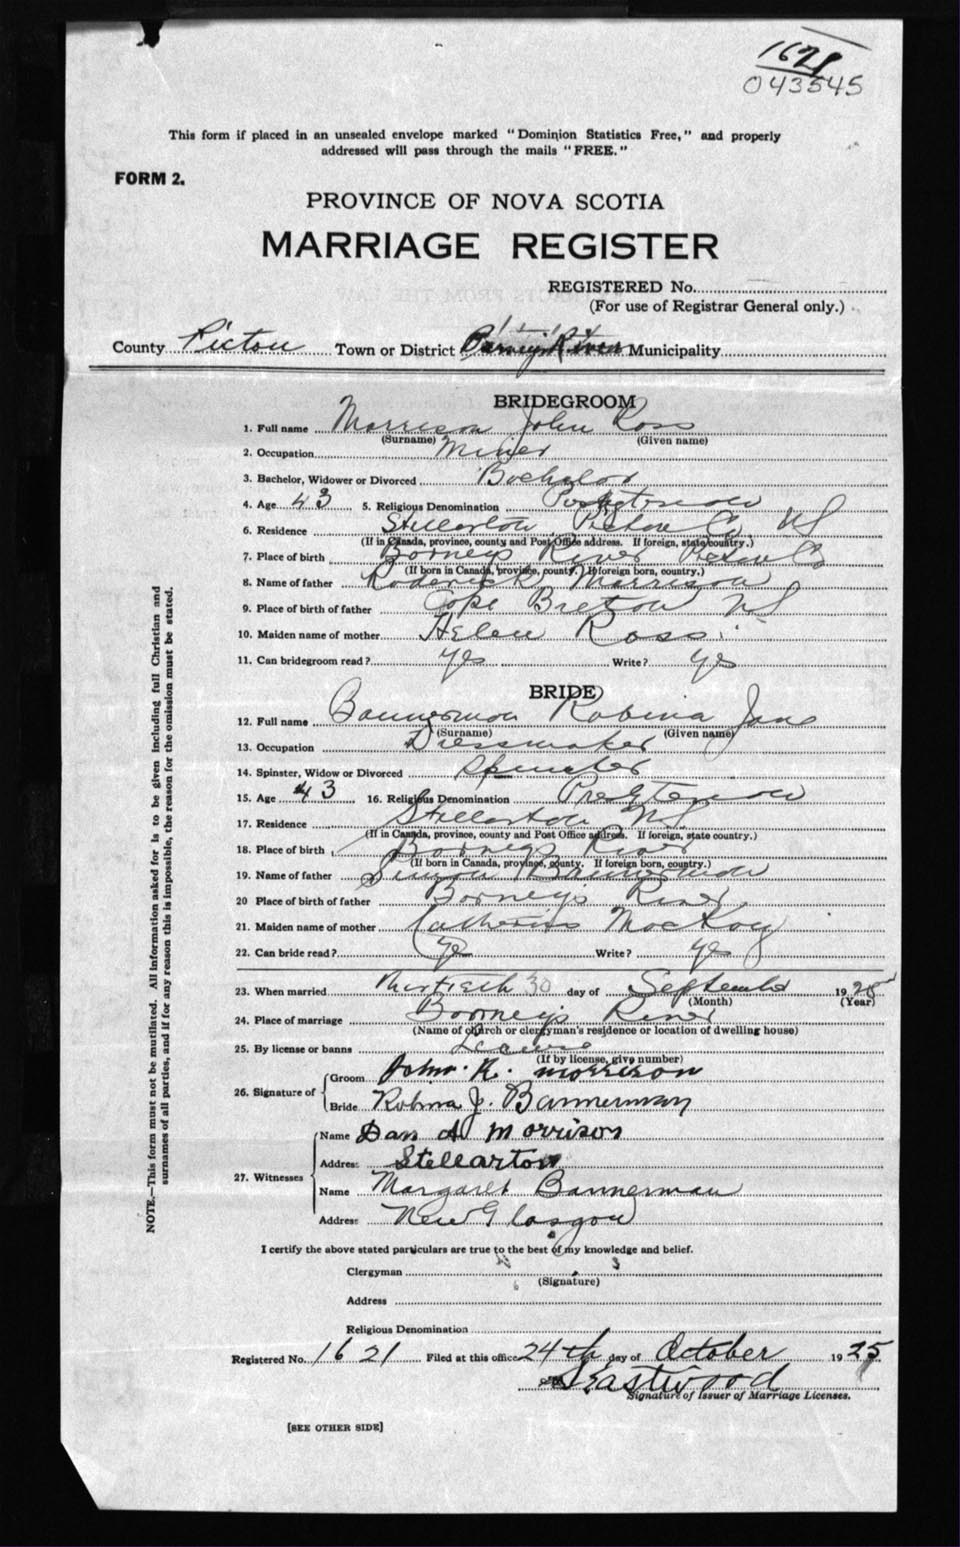 1621
043545
This form if placed in an unsealed envelope marked "Dominion Statistics Free," and properly
addressed will pass through the mails "FREE."
FORM 2.
PROVINCE OF NOVA SCOTIA
MARRIAGE REGISTER
REGISTERED No.
(For use of Registrar General only.)
County Pictou Town or District Barneys River Municipality
BRIDEGROOM
1. Full name Morrison John Ross
(Surname) (Given name)
2. Occupation Miner
3. Bachelor, Widower or Divorced Bachelor
4. Age 43 5. Religious Denomination Presbyterian
6. Residence Stellarton Pictou Co NS
(If in Canada, province, county and Post Office address. If foreign, state country.)
7. Place of birth Barneys River Pictou Co
(If born in Canada, province, county. If foreign born, country.)
8. Name of father Roderick Morrison
9. Place of birth of father Cape Breton NS
10. Maiden name of mother Helen Ross
11. Can bridegroom read? yes Write? yes
BRIDE
12. Full name Bannerman Robina Jane
(Surname) (Given name)
13. Occupation Dressmaker
14. Spinster, Widow or Divorced Spinster
15. Age 43 16. Religious Denomination Presbyterian
17. Residence Stellarton NS
(If in Canada, province, county and Post Office address. If foreign, state country.)
18. Place of birth Barneys River
(If born in Canada, province, county. If foreign born, country.)
19. Name of father Simon Bannerman
20 Place of birth of father Barneys River
21. Maiden name of mother Catherine MacKay
22. Can bride read? yes Write? yes
23. When married Thirtieth 30 day of September 1925
(Month) (Year)
24. Place of marriage Barneys River
(Name of church or clergyman's residence or location of dwelling house)
25. By license or banns License
(If by license, give number)
26. Signature of Groom John. R. Morrison
Bride Robina J. Bannerman
27. Witnesses Name Dan A Morrison
Address Stellarton
Name Margaret Bannerman
Address New Glasgow
I certify the above stated particulars are true to the best of my knowledge and belief.
Clergyman
(Signature)
Address
Religious Denomination
Registered No. 1621 Filed at this office 24th day of October 1925
Eastwood
Signature of Issuer of Marriage Licenses.
[SEE OTHER SIDE]
NOTE.—This form must not be mutilated. All information asked for is to be given including full Christian and
surnames of all parties, and if for any reason this is impossible, the reason for the omission must be stated.